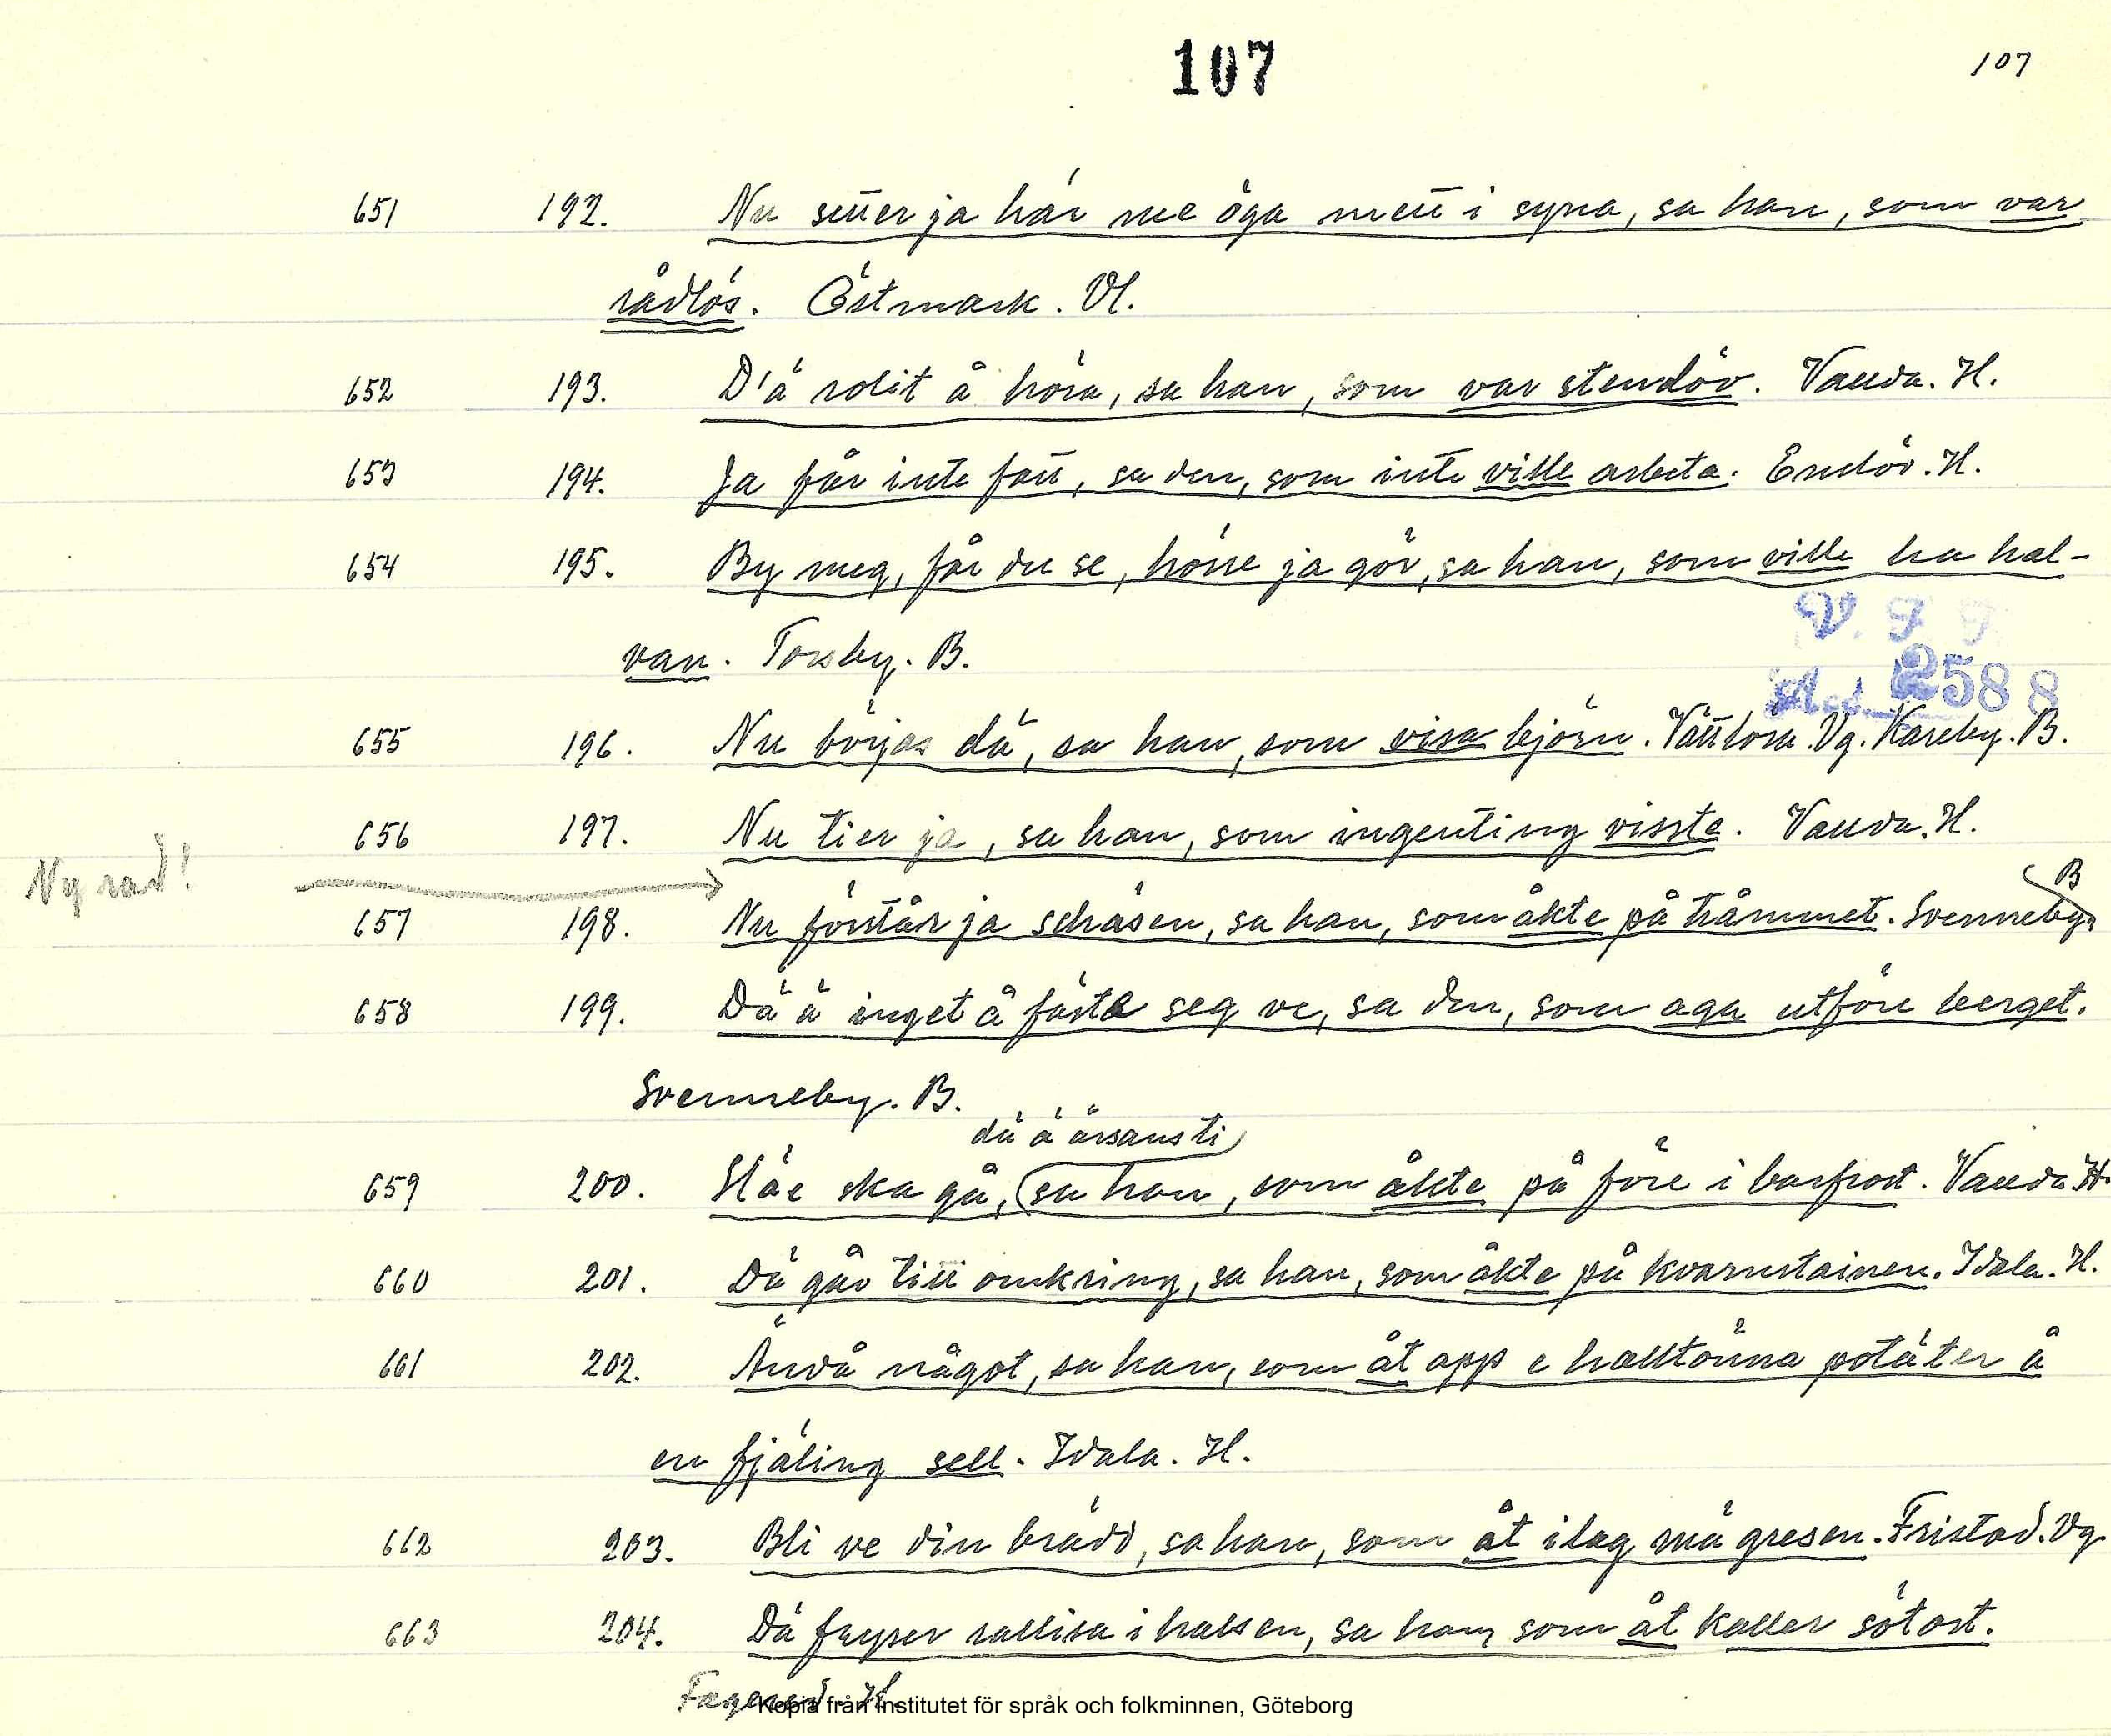 107 107
651 192. Nu sitter ja här me öga mett i syna, sa han, som var
rådlös. Östmark. Vl.
652 193. D'ä rolit å höra, sa han, som var stendöv. Vauda. H.
653 194. Ja får inte fatt, sa den, som inte ville arbeta. Enslöv. H.
654 195. By meg, får du se, hörre ja gör, sa han, som ville ha hal-
V. F. F.
van. Torsby. B.
Acc. 2588
655 196. Nu börjas dä, sa han, som visa björn. Vättlösa. Vg. Kareby. B.
656 197. Nu tier ja, sa han, som ingenting visste. Vauda. H.
Ny rad!
B
657 198. Nu förstår ja schäsen, sa han, som åkte på trämmet. Svenneby.
658 199. Dä ä inget å fästa seg ve, sa den, som aga utföre berget.
Svenneby. B.
dä ä årsansti
659 200. Häe ska gå, sa han, som åkte på före i barfrost. Vauda H.
660 201. Dä går titt omkring, sa han, som åkte på kvarnstainen. Idala. H.
661 202. Ändå något, sa han, som åt opp e halltönna potäter å
en fjäling sell. Idala. H.
662 203. Bli ve din brädd, sa han, som åt ilag mä gresen. Fristad. Vg.
663 204. Dä fryser rallisa i halsen, sa han, som åt kaller sötost.
Fagered. H.
Kopia från Institutet för språk och folkminnen, Göteborg